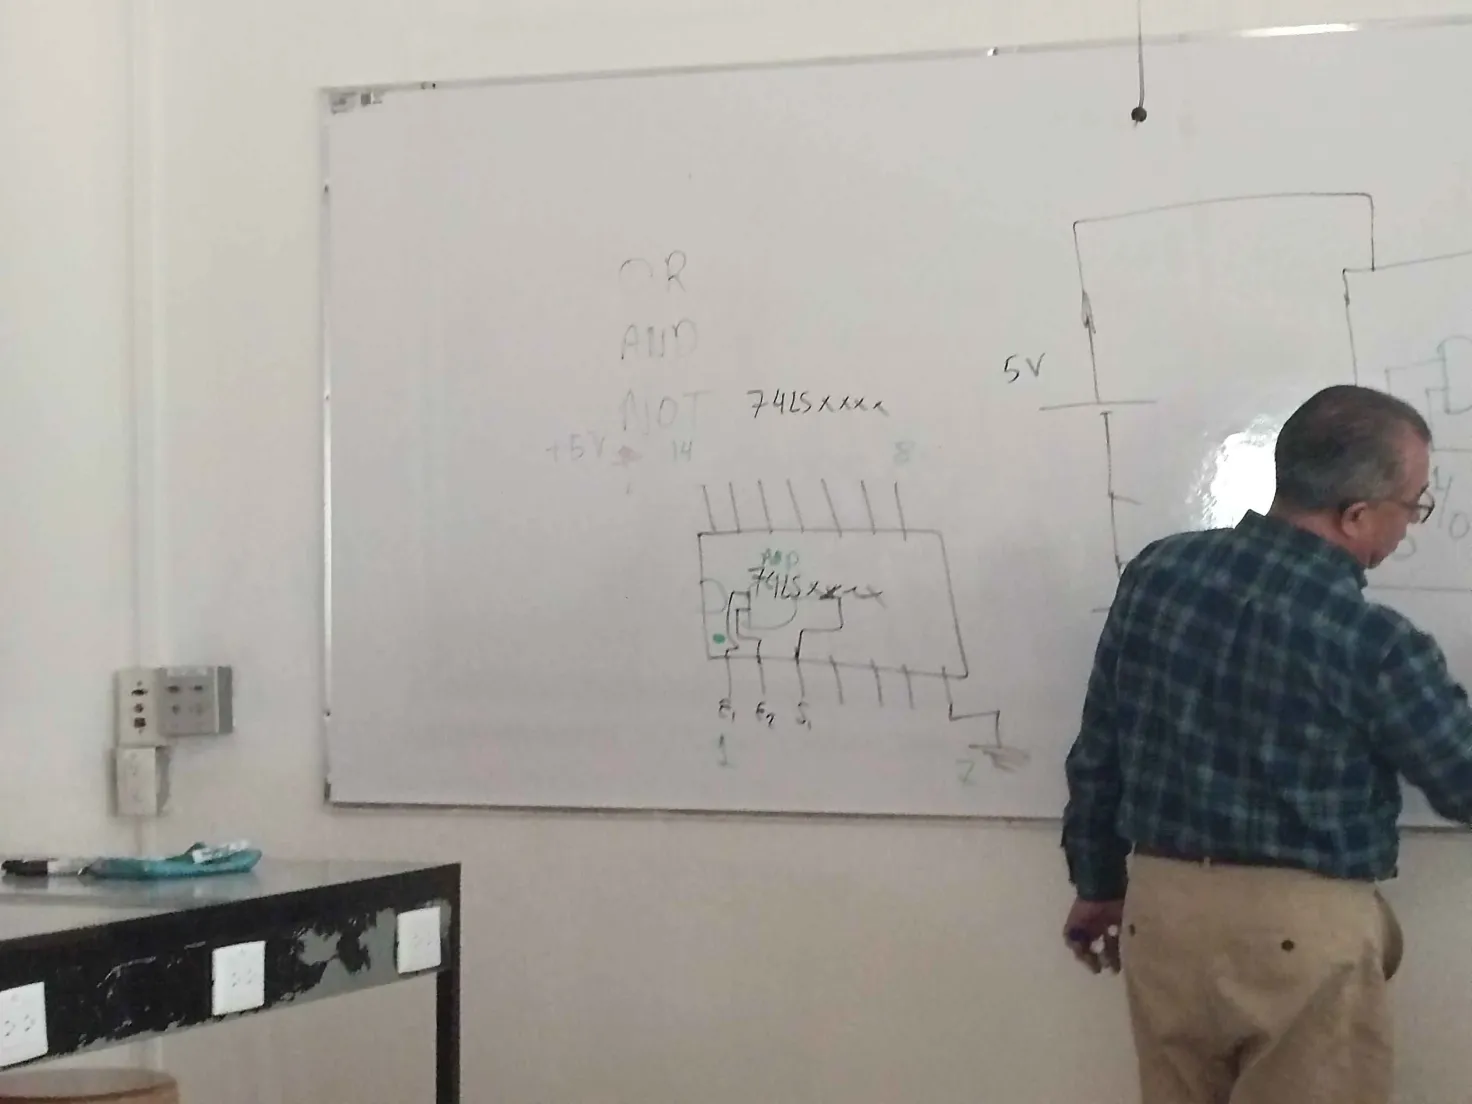 OR
AND
NOT 74LSxxxx
+5V 14 8
AND
74LSxxxx
E1 E2 S1
1 7
5V